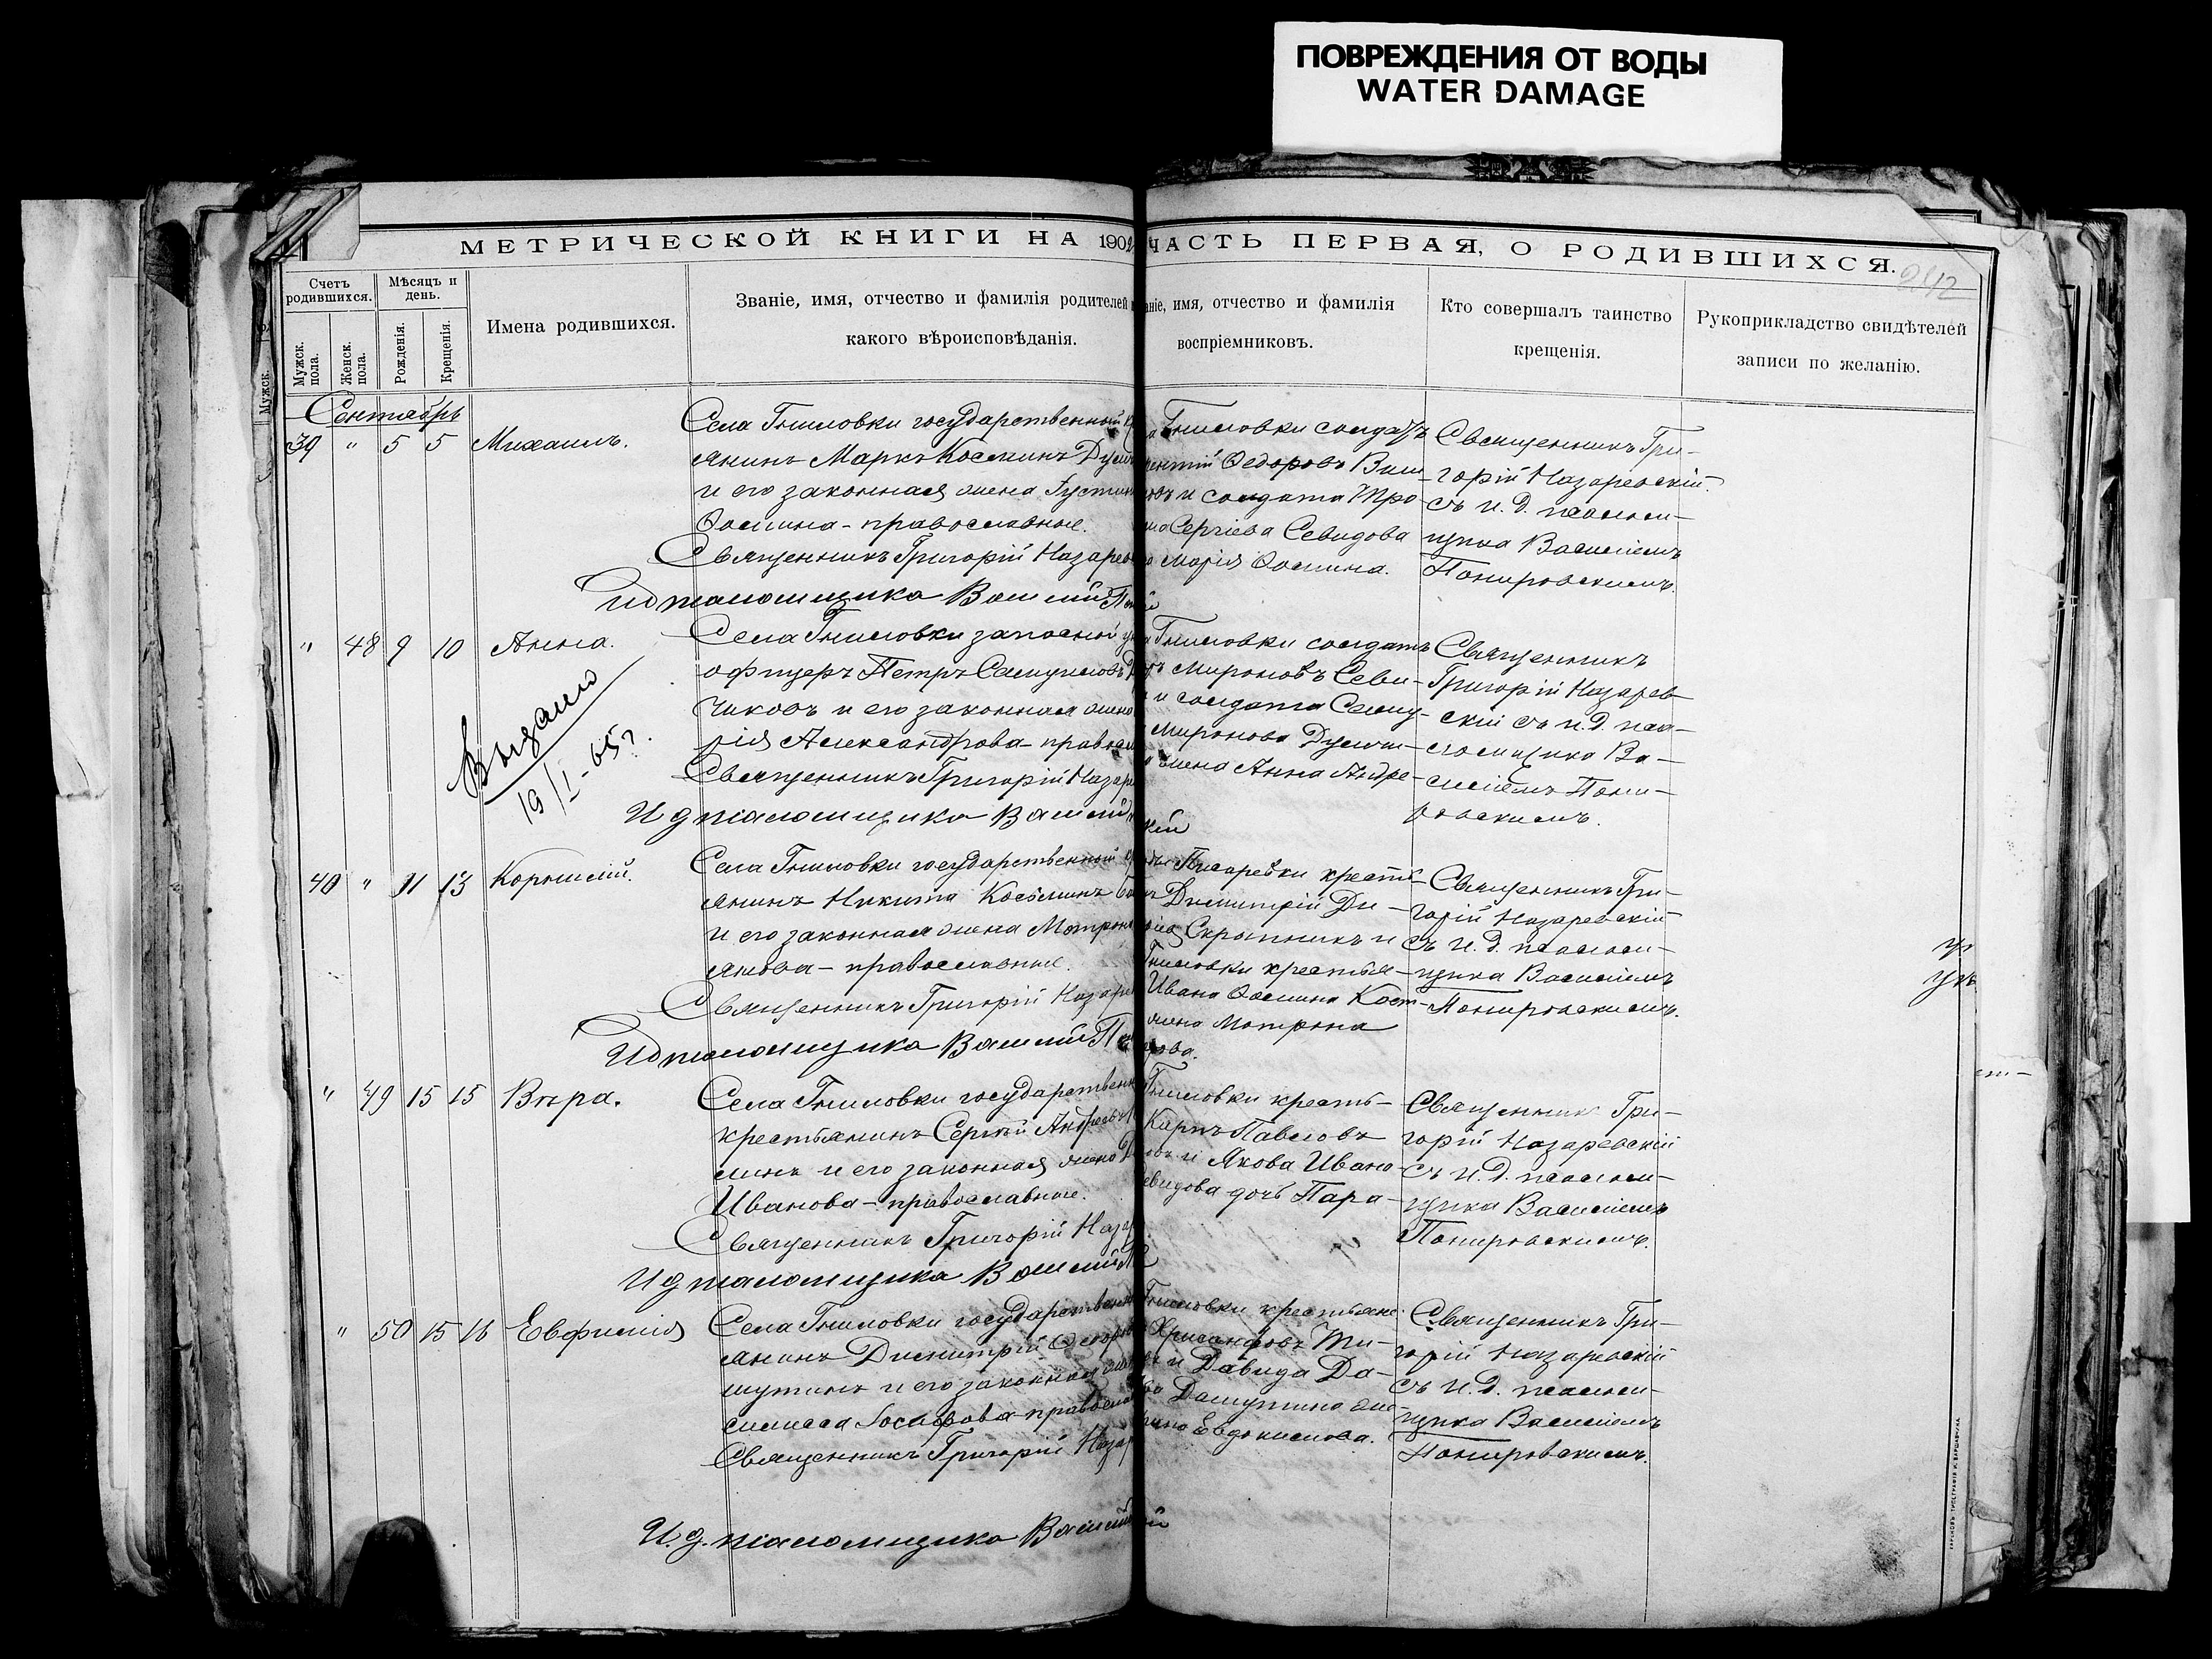 ПОВРЕЖДЕНИЯ ОТ ВОДЫ
WATER DAMAGE
МЕТРИЧЕСКОЙ КНИГИ НА 1902
ЧАСТЬ ПЕРВАЯ, О РОДИВШИХСЯ.
Счетъ родившихся.
Мужск. пола.
Женск. пола.
Мѣсяцъ и день.
Рожденія.
Крещенія.
Имена родившихся.
Званіе, имя, отчество и фамилія родителей
какого вѣроисповѣданія.
аніе, имя, отчество и фамилія
воспріемниковъ.
Кто совершалъ таинство
крещенія.
Рукоприкладство свидѣтелей
записи по желанію.
Сентябрь
39 " 5 5 Михаилъ.
Села Гниловки государственный
янинъ Маркъ Косминъ
и его законная жена
Ѳомина - православные.
Священникъ Григорій Назарев
Ид псаломщика Василій
Гниловки солдатъ
Ѳедоровъ
и солдата Тро
Сергіева Севидова
Марія Ѳомина.
Священникъ Гри-
горій Назаревскій
съ и. д. псалом-
щика Василіемъ
Понировскимъ.
" 48 9 10 Анна.
Выдано
19/I-65г.
Села Гниловки запасной
офицеръ Петръ Самуиловъ
чиковъ и его законная жена
рія Александрова - правосл
Священникъ Григорій Назар
И д псаломщика Василій
Гниловки солдатъ
Мироновъ Севи-
и солдата Саму-
Миронова
жена Анна Андре-
Священникъ
Григорій Назарев
скій съ и. д. пса-
ломщика Ва-
силіемъ Пони-
ровскимъ.
40 " 11 13 Корнилій.
Села Гниловки государственный
янинъ Никита Косьминъ
и его законная жена Матрона
- православные.
Священникъ Григорій Назар
Ид псаломщика Василій
Писаревки кресть
Димитрій Ди-
Скрыпникъ и
Гниловки крестья-
Ивана Ѳомина Кост-
жена Матрона
Священникъ Гри-
горій Назаревскій
съ и. д. псалом-
щика Василіемъ
Понировскимъ.
" 49 15 15 Вѣра.
Села Гниловки государствен
крестьянинъ Сергѣй Андреевъ
минъ и его законная жена
Иванова - православные.
Священникъ Григорій Назар
И д псаломщика Василій
Гниловки кресть-
Карпъ Павловъ
и Якова Ивано-
евидова дочь Пара-
Священникъ Гри-
горій Назаревскій
съ и. д. псалом-
щика Василіемъ
Понировскимъ.
" 50 15 16 Евфимія
Села Гниловки государствен
янинъ Димитрій Ѳедоровъ
шутинъ и его законная
Іосифова - правосла
Священникъ Григорій Назар
И. д. псаломщика Василій
Гниловки крестьяне
Хрисанфовъ Ти-
и Давида Да-
Дашутина
Евдокимова.
Священникъ Гри-
горій Назаревскій
съ И. Д. псалом-
щика Василіемъ
Понировскимъ.